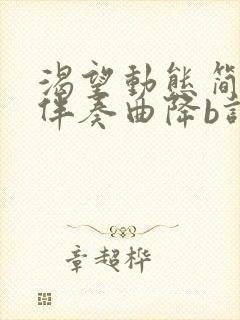 渴望動態简
伴奏曲降b
章超桦